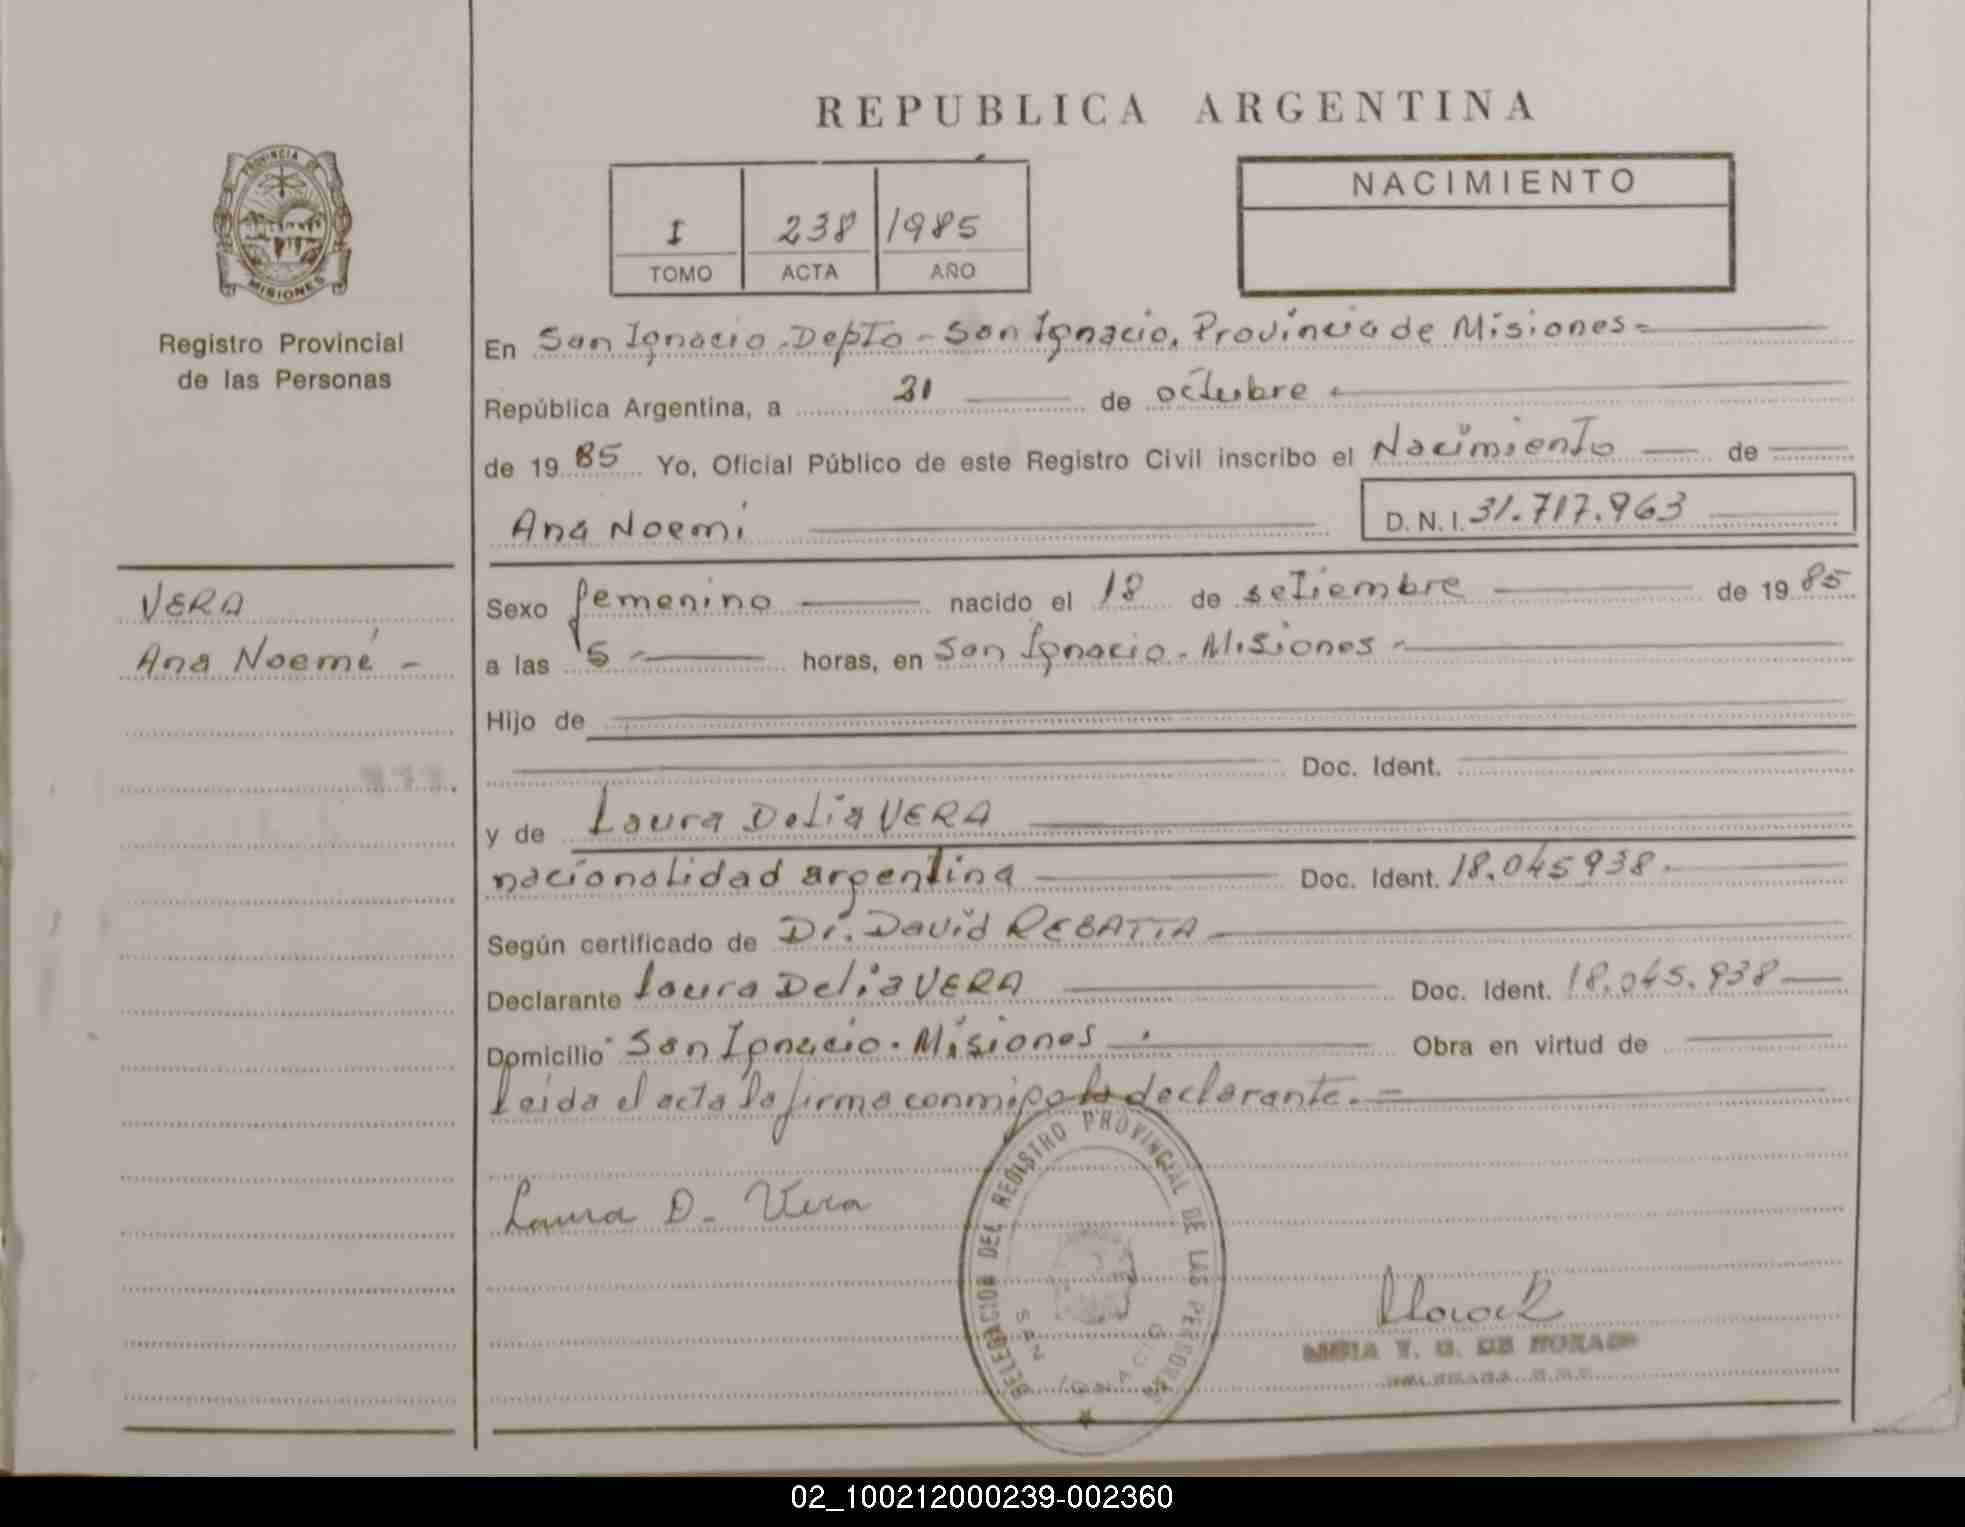 REPUBLICA ARGENTINA
PROVINCIA DE MISIONES
Registro Provincial
de las Personas
I 238 1985
TOMO ACTA AÑO
NACIMIENTO
En San Ignacio Depto - San Ignacio, Provincia de Misiones
República Argentina, a 31 de octubre
de 19 85 Yo, Oficial Público de este Registro Civil inscribo el Nacimiento de
Ana Noemi D.N.I. 31.717.963
VERA
Ana Noemi
Sexo femenino nacido el 18 de setiembre de 19 85
a las 5 horas, en San Ignacio - Misiones
Hijo de
Doc. Ident.
y de Laura Delia VERA
nacionalidad argentina Doc. Ident. 18.045938
Según certificado de Dr. David REBATTA
Declarante Laura Delia VERA Doc. Ident. 18.045.938
Domicilio San Ignacio. Misiones Obra en virtud de
Leida el acta la firma conmigo la declarante. =
Laura D. Vera
DELEGACION DEL REGISTRO PROVINCIAL DE LAS PERSONAS
SAN IGNACIO
02_100212000239-002360